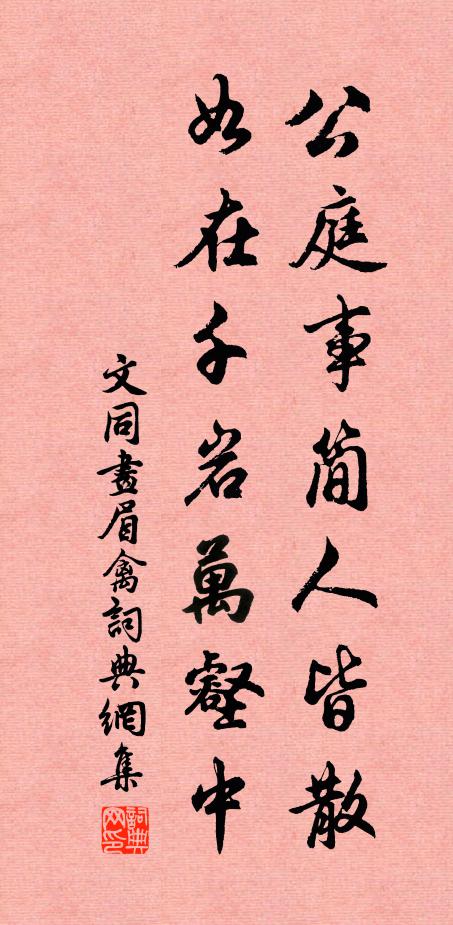 公庭事簡人皆散
如在千岩萬壑中
文同畫眉禽詞典網集
詞典網印